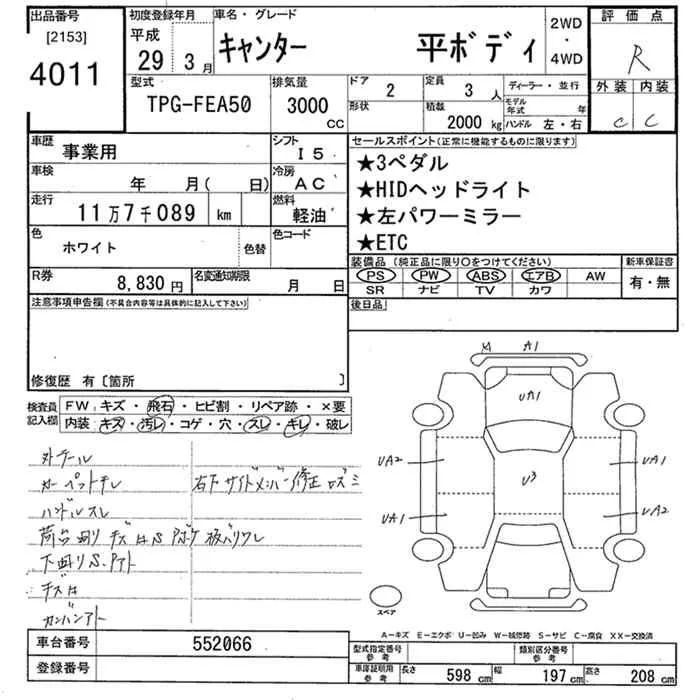 出品番号
[2153]
4011
初度登録年月
平成
29 3月
車名・グレード
キャンター 平ボディ
2WD
・
4WD
評価点
R
外装 内装
C C
型式
TPG-FEA50
排気量
3000
CC
ドア
2
定員
3 人
形状
積載
2000 kg
ディーラー・並行
モデル年式 年
ハンドル 左・右
車歴
事業用
シフト
I5
車検
年 月( 日)
冷房
AC
走行
11万7千089 km
燃料
軽油
色
ホワイト
色替
色コード
R券
8,830円
名変通知期限
月 日
セールスポイント(正常に機能するものに限ります)
★3ペダル
★HIDヘッドライト
★左パワーミラー
★ETC
装備品 (純正品に限り○をつけてください)
PS PW ABS エアB AW
SR ナビ TV カワ
新車保証書
有・無
後日品
注意事項申告欄(不具合内容等は具体的に記入して下さい)
修復歴 有〔箇所 〕
検査員記入欄
FW:キズ・飛石・ヒビ割・リペア跡・×要
内装:キズ・汚レ・コゲ・穴・スレ・キレ・破レ
カーペットキレ
右下サイドメンバー修正
ハンドルスレ
A1
UA1
UA2
UA1
U3
UA1
UA2
スペア
A−キズ E−エクボ U−凹み W−補修跡 S−サビ C−腐食 XX−交換済
車台番号
552066
登録番号
型式指定番号
参考
類別区分番号
参考
車庫証明用
参考
長さ 598 cm 幅 197 cm 高さ 208 cm